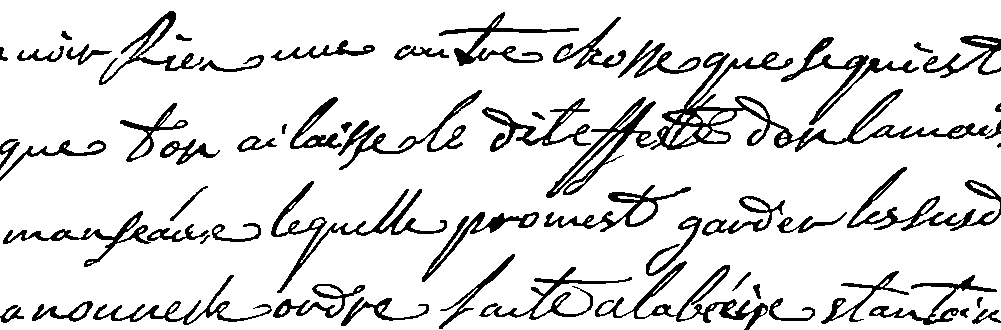 nuoir Rien une autre chosse que se quiest
que ton ai laisse le dit effest don la mais
manseaire lequelle promest garder les susd
a nouuelle ordre faite a la breire stantoin